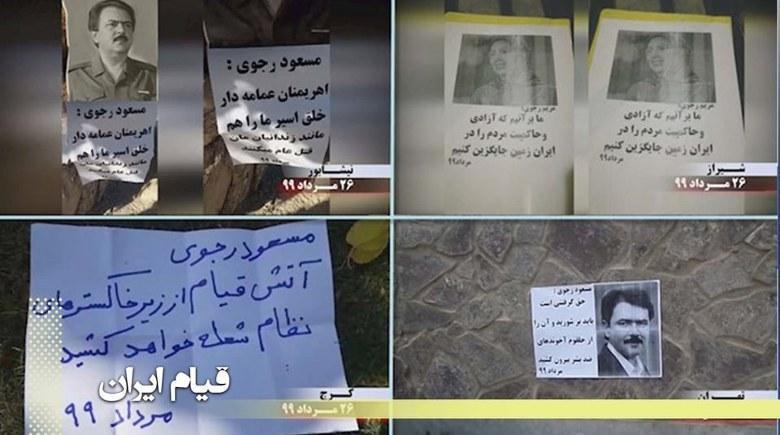 مسعود رجوی :
اهریمنان عمامه دار
خلق اسیر ما را هم
مانند زندانیان مان
قتل عام میکنند
مرداد ۹۹
مسعود رجوی :
اهریمنان عمامه دار
خلق اسیر ما را هم
مانند زندانیان مان
قتل عام میکنند
نیشابور
۲۶ مرداد ۹۹
مریم رجوی:
ما برآنیم که آزادی
وحاکمیت مردم را در
ایران زمین جایگزین کنیم
مرداد۹۹
مریم رجوی:
ما برآنیم که آزادی
وحاکمیت مردم را در
ایران زمین جایگزین کنیم
مرداد۹۹
شیراز
۲۶ مرداد ۹۹
مسعود رجوی
آتش قیام از زیر خاکسترهای
نظام شعله خواهد کشید
مرداد ۹۹
کرج
۲۶ مرداد ۹۹
قیام ایران
مسعود رجوی :
حق گرفتنی است
باید بر شورید و آن را
از حلقوم آخوندهای
ضد بشر بیرون کشید
مرداد ۹۹
تهران
۲۶ مرداد ۹۹